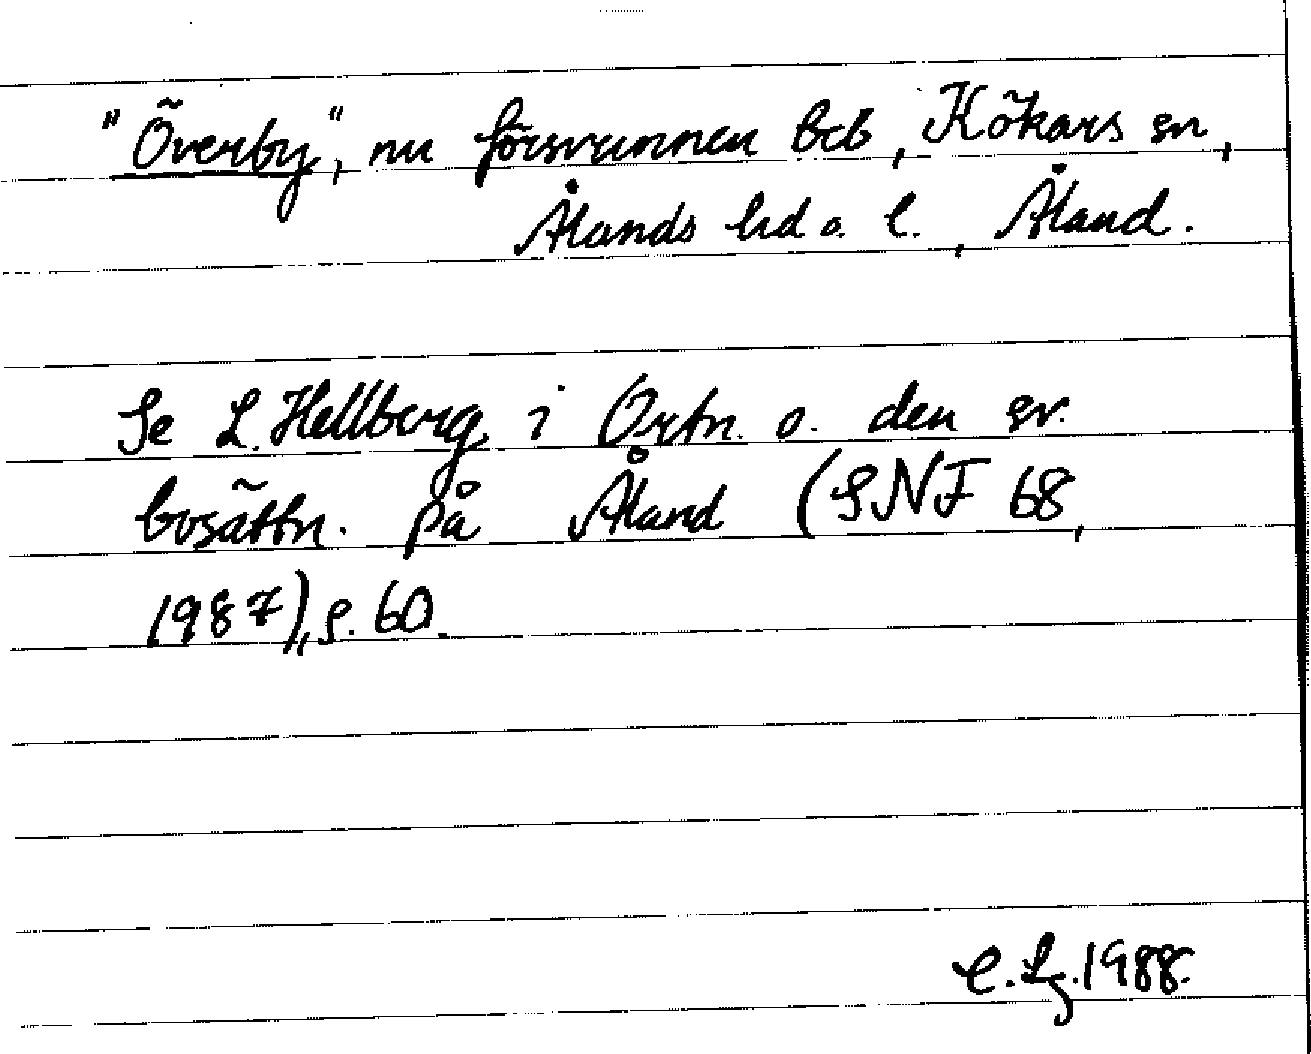 "Överby", nu försvunnen beb, Kökars sn,
Ålands hd o. l., Åland.
Se L. Hellberg i Ortn. o. den sv.
bosättn. på Åland (SNF 68,
1987), s. 60.
C. Lg. 1988.